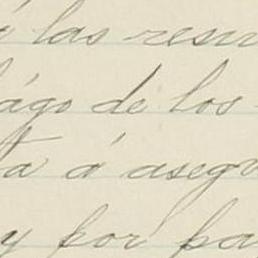 á las resu
ágo de los
a á asegu
y por pa